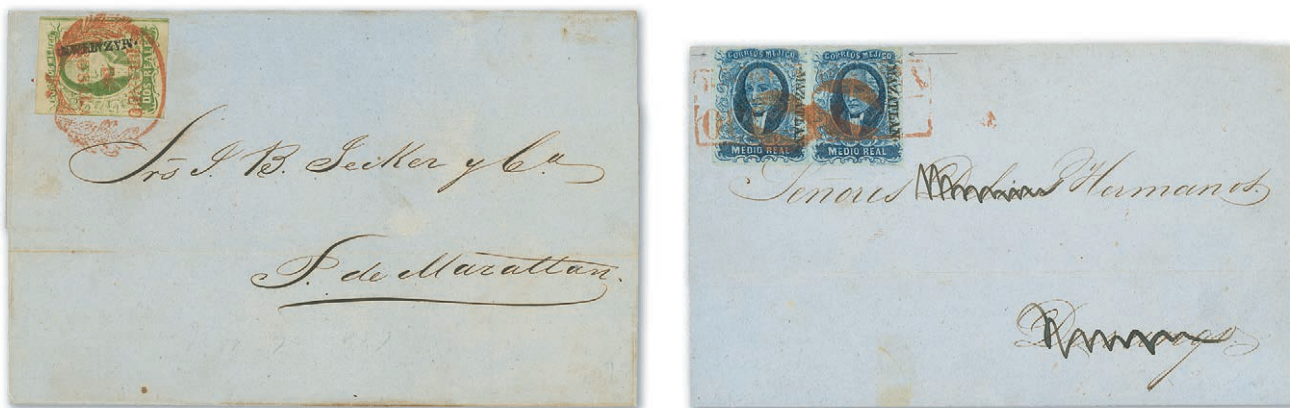 MAZATLAN.
DOS REALES
Srs J. B. Jecker y Ca
P. de Mazatlan.
CORREOS MEJICO CORREOS MEJICO
MAZATLAN MAZATLAN
MEDIO REAL MEDIO REAL
Señores Hermanos
Durango